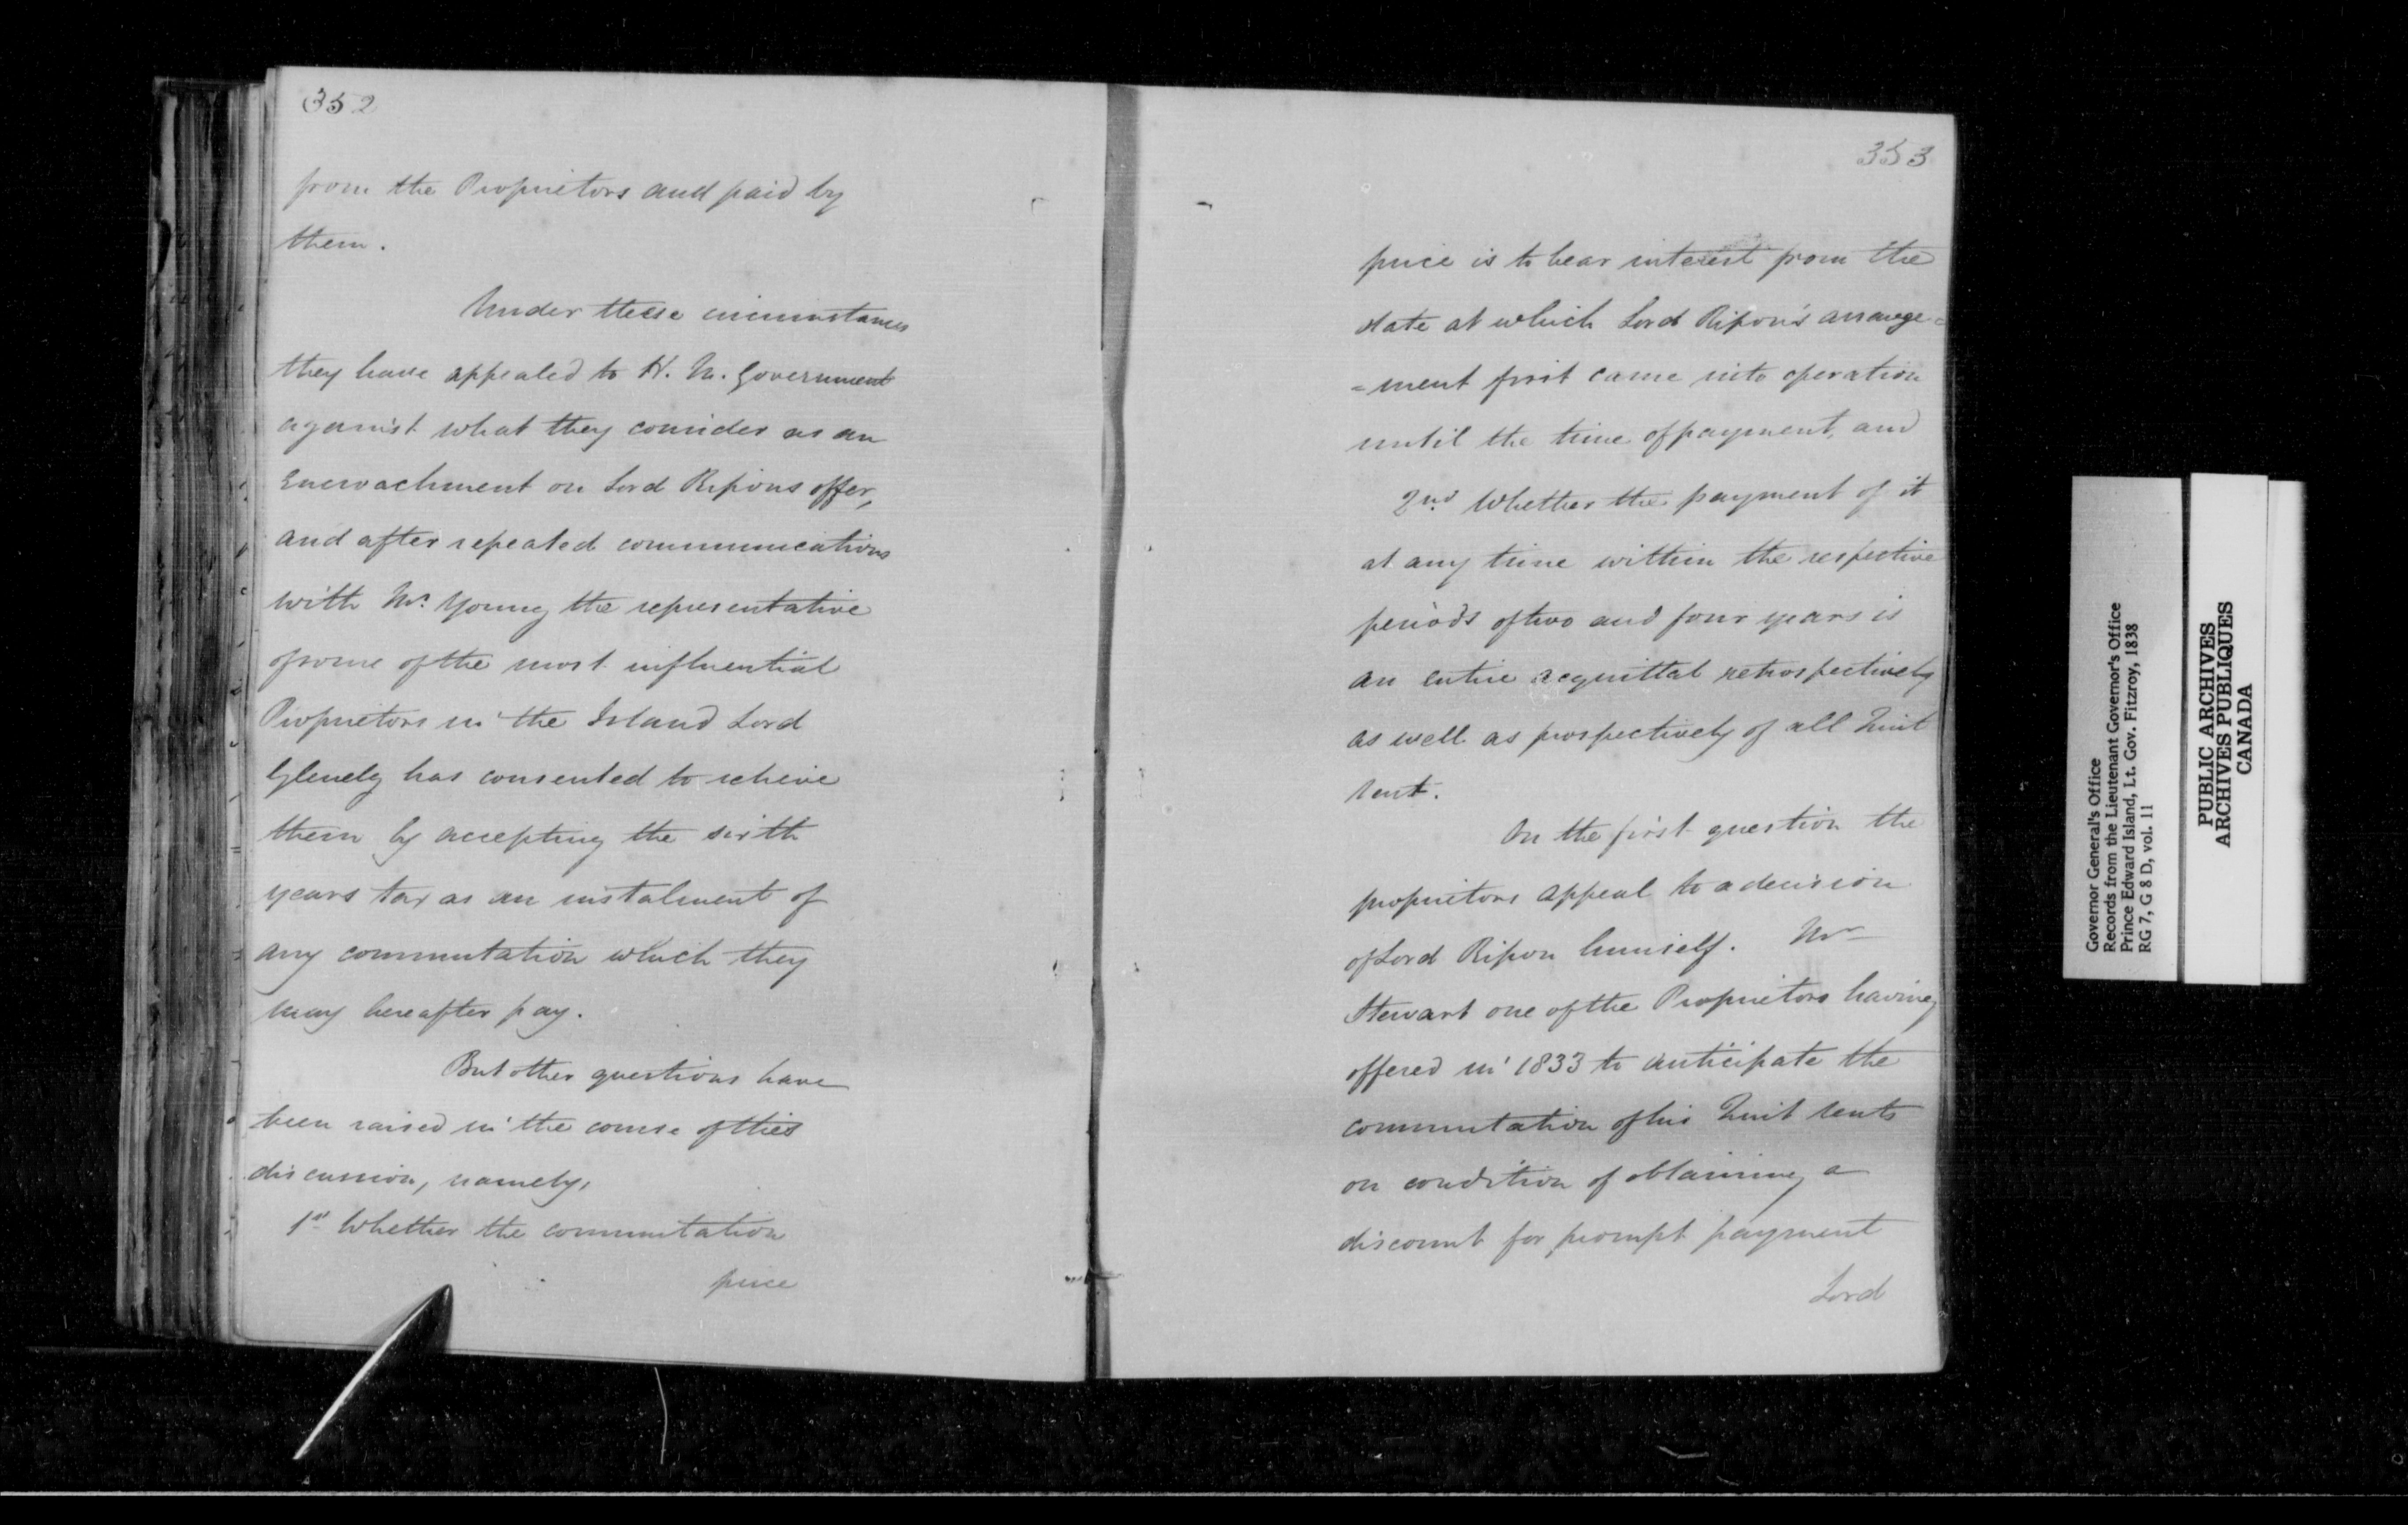 352
from the Proprietors and paid by
them.
Under these circumstances
they have appealed to H. M. Government
against what they consider as an
Encroachment on Lord Ripons offer,
and after repeated communications
with Mr. Young the representative
of some of the most influential
Proprietors in the Island Lord
Glenelg has consented to relieve
them by accepting the sixth
years tax as an instalment of
any commutation which they
may hereafter pay.
But other questions have
been raised in the course of this
discussion, namely,
1st Whether the commutation
price
353
price is to bear interest from the
date at which Lord Ripon's arrange=
=ment first came into operation
until the time of payment, and
2nd Whether the payment of it
at any time within the respective
periods of two and four years is
an entire acquittal retrospectively
as well as prospectively of all Quit
rent.
On the first question the
proprietors appeal to a decision
of Lord Ripon himself. Mr
Stewart one of the Proprietors having
offered in 1833 to anticipate the
commutation of his Quit rents
on condition of obtaining a
discount for prompt payment
Lord
Governor General's Office
Records from the Lieutenant Governor's Office
Prince Edward Island, Lt. Gov. Fitzroy, 1838
RG 7, G 8 D, vol. 11
PUBLIC ARCHIVES
ARCHIVES PUBLIQUES
CANADA